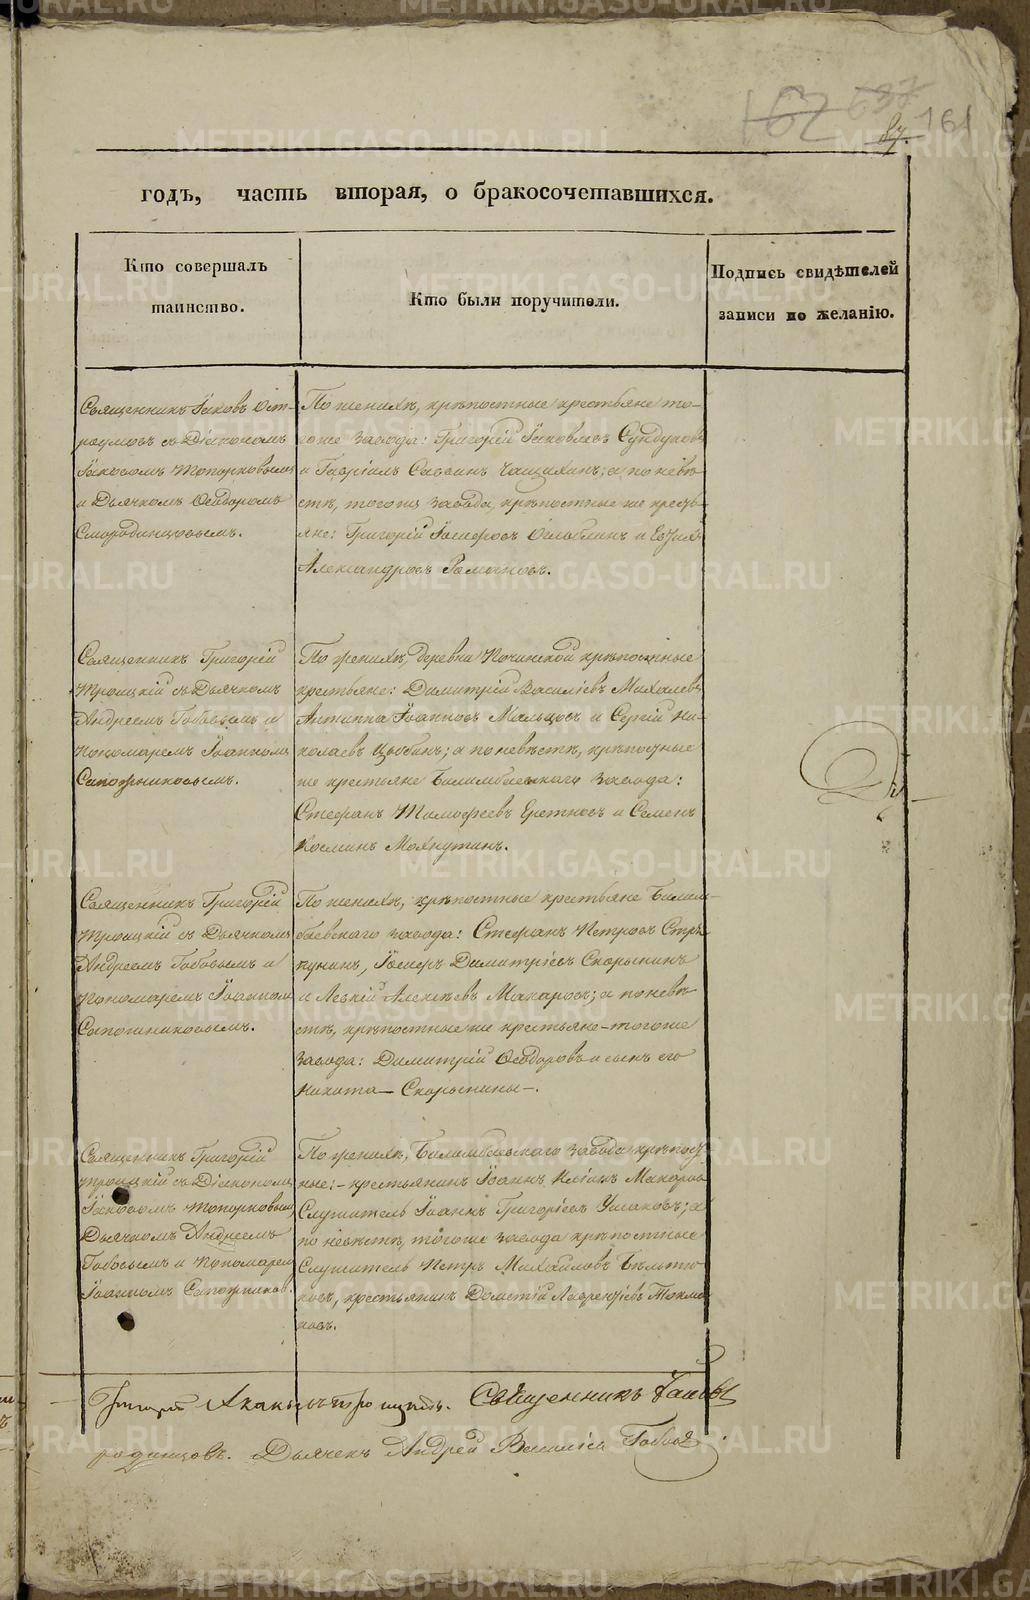 162 637 161
87.
годъ, часть вторая, о бракосочетавшихся.
Кто совершалъ
таинство.
Кто были поручители.
Подпись свидѣтелей
записи по желанію.
Священникъ Іаковъ Ост-
роумовъ съ Діакономъ
Іаковомъ Топорковымъ
и Дьячкомъ Ѳеодоромъ
Смородинцовымъ.
По женихѣ, крѣпостные крестьяне то-
гоже завода: Григорій Іаковлевъ Сундуковъ
и Гавріилъ Саввинъ Чащихинъ; а по невѣ-
стѣ, тогожъ завода, крѣпостные же крестья-
яне: Григорій
Александровъ
Священникъ Григорій
Троицкій съ Дьячкомъ
Андреемъ Бабовымъ и
Пономаремъ Іоанномъ
Сапожниковымъ.
По женихѣ, деревни Починской крѣпостные
крестьяне: Димитрій Василіевъ Михалевъ,
Антипа Іоанновъ Мальцовъ и Сергій Ни-
колаевъ; а по невѣстѣ, крѣпостные
же крестьяне Билимбаевскаго завода:
Стефанъ Тимофеевъ и Семенъ
Косминъ Мохнуткинъ.
Священникъ Григорій
Троицкій съ Дьячкомъ
Андреемъ Бабовымъ и
Пономаремъ Іоанномъ
Сапожниковымъ.
По женихѣ, крѣпостные крестьяне Билим-
баевскаго завода: Стефанъ Петровъ Стря-
пунинъ, Іосифъ Димитріевъ Скорынинъ
и Алексѣевъ Макаровъ; а по невѣ-
стѣ, крѣпостные же крестьяне тогоже
завода: Димитрій Ѳеодоровъ и сынъ его
Никита — Скорынины —.
Священникъ Григорій
Троицкій съ Діакономъ
Іаковомъ Топорковымъ
Дьячкомъ Андреемъ
Бабовымъ и Пономаремъ
Іоанномъ Сапожников.
По женихѣ, Билимбаевскаго завода крѣпост-
ные: – крестьянинъ Іоаннъ Макаровъ
Служитель Іоаннъ Григоріевъ Ушаковъ; а
по невѣстѣ, тогоже завода крѣпостные
Служитель Петръ Михайловъ Бѣльтю-
ковъ, крестьянинъ Лаврентіевъ Токма-
ковъ.
Григорій Троицкій. Священникъ Іаковъ
родинцовъ. Дьячекъ Андрей Василіевъ Бабовъ.